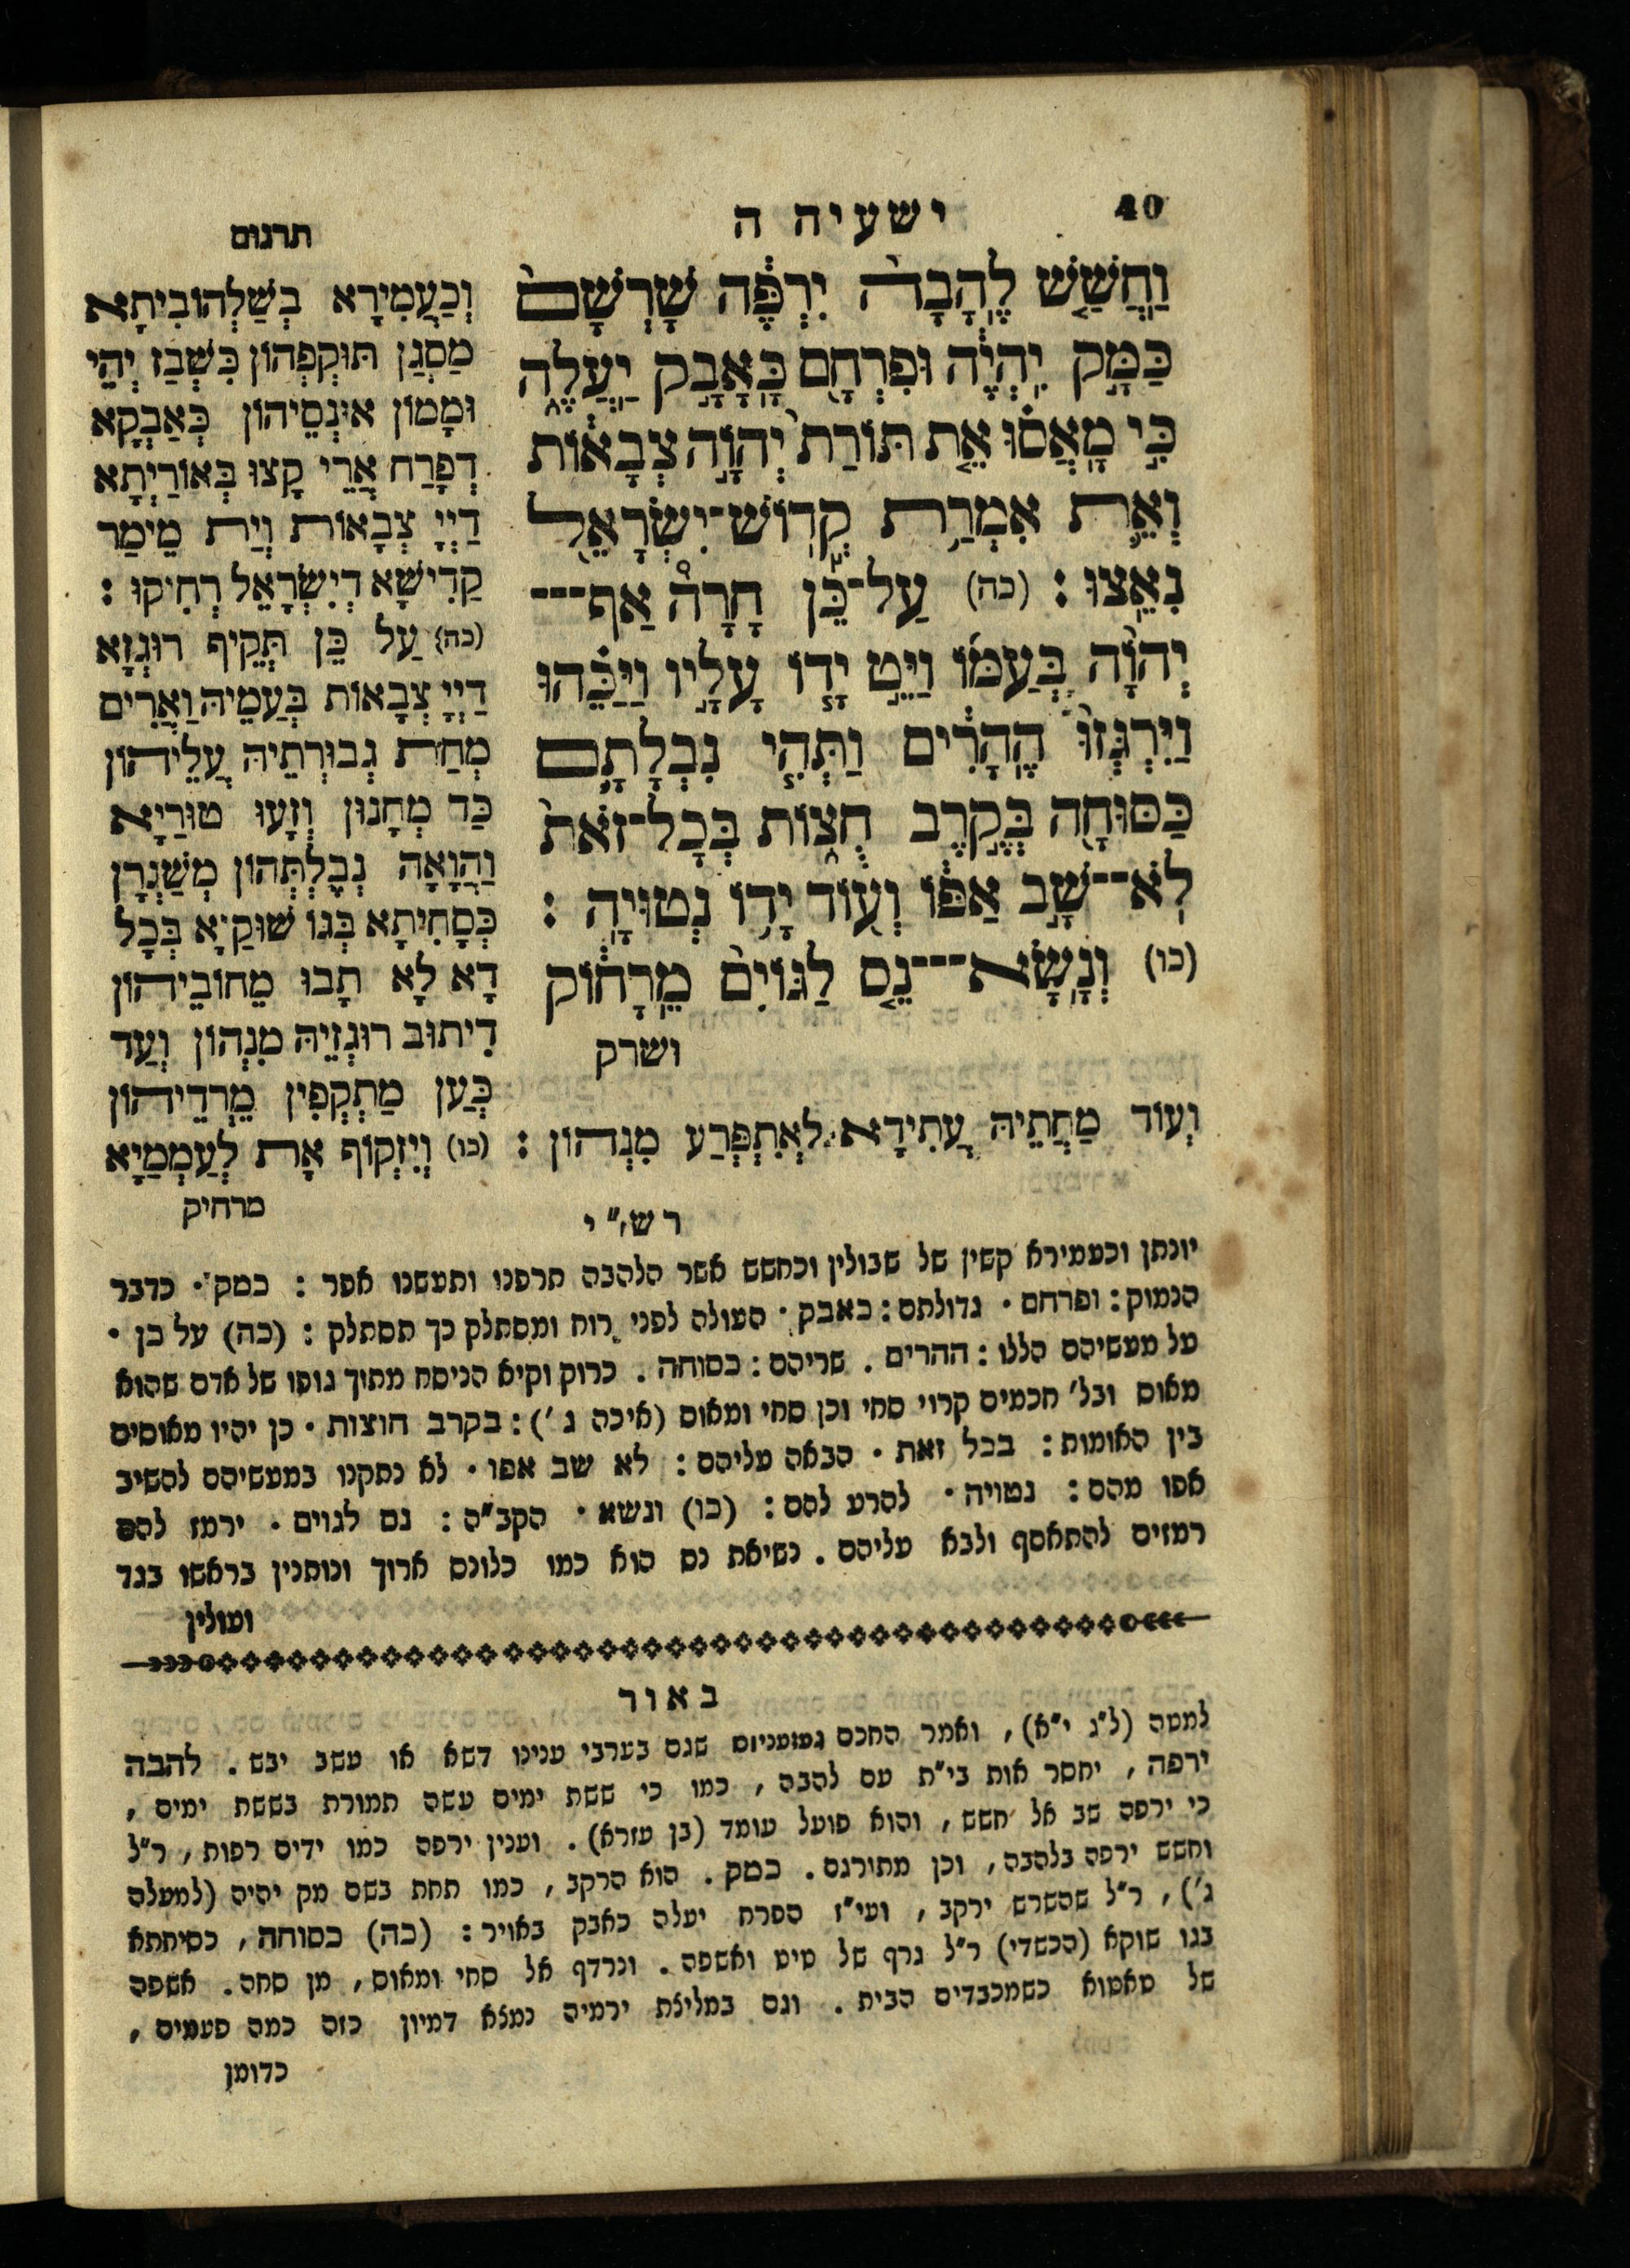 40
ישעיה ה
וַחֲשַׁשׁ לֶהָבָה יִרְפֶּה שָׁרְשָׁם
כַּמָּק יִהְיֶה וּפִרְחָם כָּאָבָק יַעֲלֶה
כִּי מָאֲסוּ אֵת תּוֹרַת יְהוָֹה צְבָאוֹת
וְאֵת אִמְרַת קְדוֹשׁ־יִשְׂרָאֵל
נִאֵצוּ : (כה) עַל־כֵּן חָרָה אַף־־־
יְהוָֹה בְּעַמּוֹ וַיֵּט יָדוֹ עָלָיו וַיַּכֵּהוּ
וַיִּרְגְּזוּ הֶהָרִים וַתְּהִי נִבְלָתָם
כַּסּוּחָה בְּקֶרֶב חֻצוֹת בְּכָל־זֹאת
לֹא־־שָׁב אַפּוֹ וְעוֹד יָדוֹ נְטוּיָה :
(כו) וְנָשָׂא־־־נֵס לַגּוֹיִם מֵרָחוֹק
ושרק
תרגום
וְכַעֲמִירָא בְשַׁלְהוֹבִיתָא
מַסְגַן תּוּקְפְהוֹן כִּשְׁבַז יְהֵי
וּמָמוֹן אוּנְסֵיהוֹן כְּאַבְקָא
דְפָרַח אֲרֵי קָצוּ בְּאוֹרַיְתָא
דַיְיָ צְבָאוֹת וְיַת מֵימַר
קַדִישָׁא דְיִשְׂרָאֵל רְחִיקוּ :
(כה) עַל כֵּן תְּקֵיף רוּגְזָא
דַיְיָ צְבָאוֹת בְּעַמֵיהּ וַאֲרֵים
מְחַת גְבוּרְתֵיהּ עֲלֵיהוֹן
כַּד מְחָנוּן וְזָעוּ טוּרַיָא
וַהֲוָאָה נְבֶלְתְּהוֹן מְשַׁגְרָן
כְּסָחִיתָא בְּגוֹ שׁוּקַיָא בְּכָל
דָא לָא תָבוּ מֵחוֹבֵיהוֹן
דִיתוּב רוּגְזֵיהּ מִנְהוֹן וְעַד
כְּעַן מַתְקְפִין מֶרְדֵיהוֹן
וְעוֹד מַחֲתֵיהּ עֲתִידָא לְאִתְפְּרַע מִנְהוֹן : (כו) וְיִזְקוֹף אָת לְעַמְמַיָא
מרחיק
רש״י
יונתן וכעמירא קשין של שבולין וכחשש אשר הלהבה תרפנו ותעשנו אפר : כמק · כדבר
הנמוק : ופרחם · גדולתם : כאבק · העולה לפני רוח ומסתלק כך תסתלק : (כה) על כן ·
על מעשיהם הללו : ההרים . שריהם : כסוחה . כרוק וקיא הניסח מתוך גופו של אדם שהוא
מאוס ובל׳ חכמים קרוי סחי וכן סחי ומאוס (איכה ג׳) : בקרב חוצות · כן יהיו מאוסים
בין האומות : בכל זאת · הבאה עליהם : לא שב אפו · לא נתקנו במעשיהם להשיב
אפו מהם : נטויה · להרע להם : (כו) ונשא · הקב״ה : נס לגוים · ירמז להם
רמזים להתאסף ולבא עליהם . נשיאת נס הוא כמו כלונס ארוך ונותנין בראשו בגד
ועולין
באור
למטה (ל״ג י״א) , ואמר החכם געזעניוס שגם בערבי ענינו דשא או עשב יבש . להבה
ירפה , יחסר אות בי״ת עם להבה , כמו כי ששת ימים עשה תמורת בששת ימים ,
כי ירפה שב אל חשש , והוא פועל עומד (בן עזרא) . וענין ירפה כמו ידים רפות , ר״ל
וחשש ירפה בלהבה , וכן מתורגם . כמק . הוא הרקב , כמו תחת בשם מק יהיה (למעלה
ג׳) , ר״ל שהשרש ירקב , ועי״ז הפרח יעלה כאבק באויר : (כה) כסוחה , כסיחתא
בגו שוקא (הכשדי) ר״ל גרף של טיט ואשפה . ונרדף אל סחי ומאוס , מן סחה . אשפה
של טאטוא כשמכבדים הבית . וגם במליצת ירמיה נמצא דמיון כזה כמה פעמים ,
כדומן